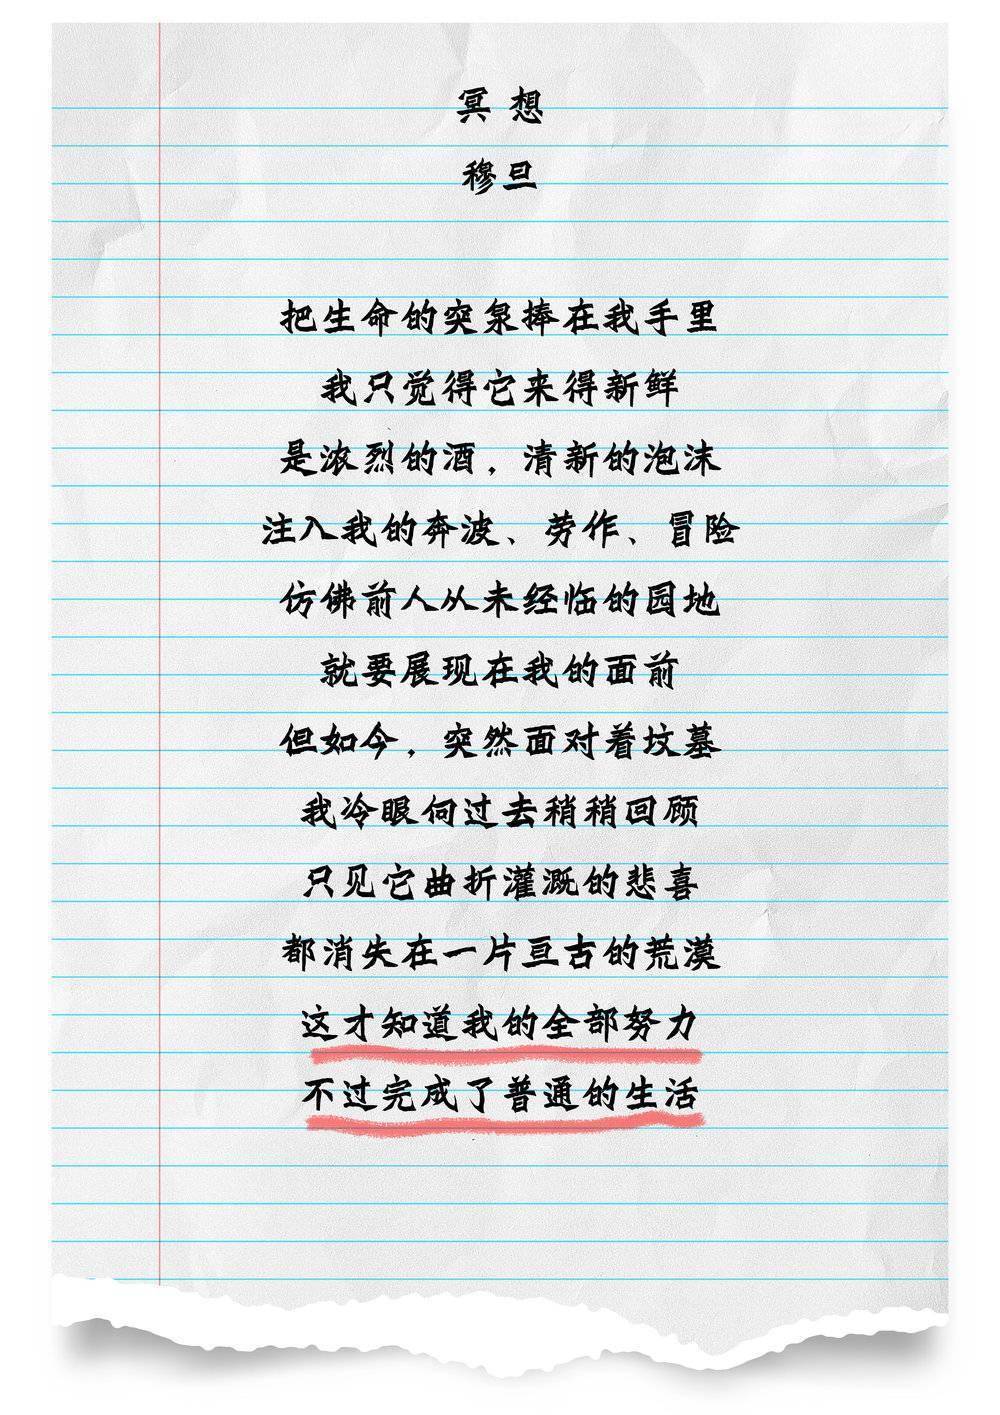 冥想
穆旦
把生命的突泉捧在我手里
我只觉得它来得新鲜
是浓烈的酒，清新的泡沫
注入我的奔波、劳作、冒险
仿佛前人从未经临的园地
就要展现在我的面前
但如今，突然面对着坟墓
我冷眼伺过去稍稍回顾
只见它曲折灌溉的悲喜
都消失在一片亘古的荒漠
这才知道我的全部努力
不过完成了普通的生活